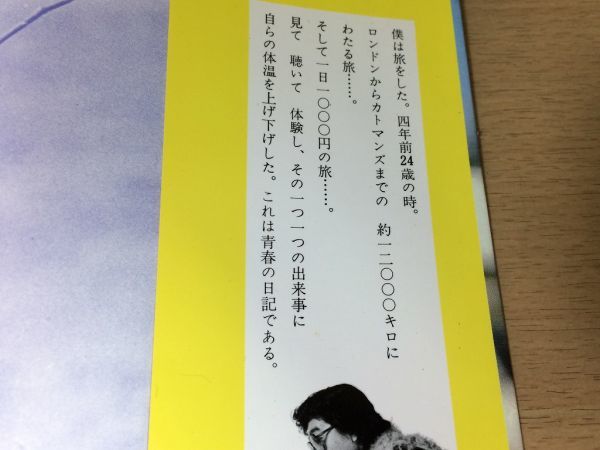 僕は旅をした。四年前24歳の時。
ロンドンからカトマンズまでの　約一二〇〇〇キロに
わたる旅……。
そして一日一〇〇〇円の旅……。
見て　聴いて　体験し、その一つ一つの出来事に
自らの体温を上げ下げした。これは青春の日記である。